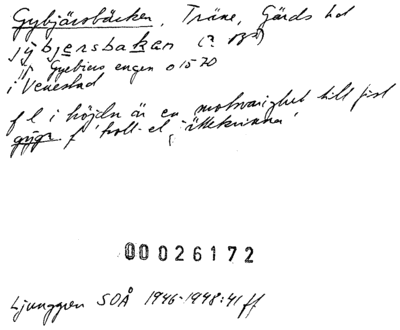 Gybjärsbäcken, Träne, Gärds hd
jýbjersbakan
Gyebiers engen o 1570
i Venestad
f l i höjden är en motsvarighet till fist
gýgr f 'troll- el. jättekvinna'
00026172
Ljunggren SOÅ 1946-1948:41 ff